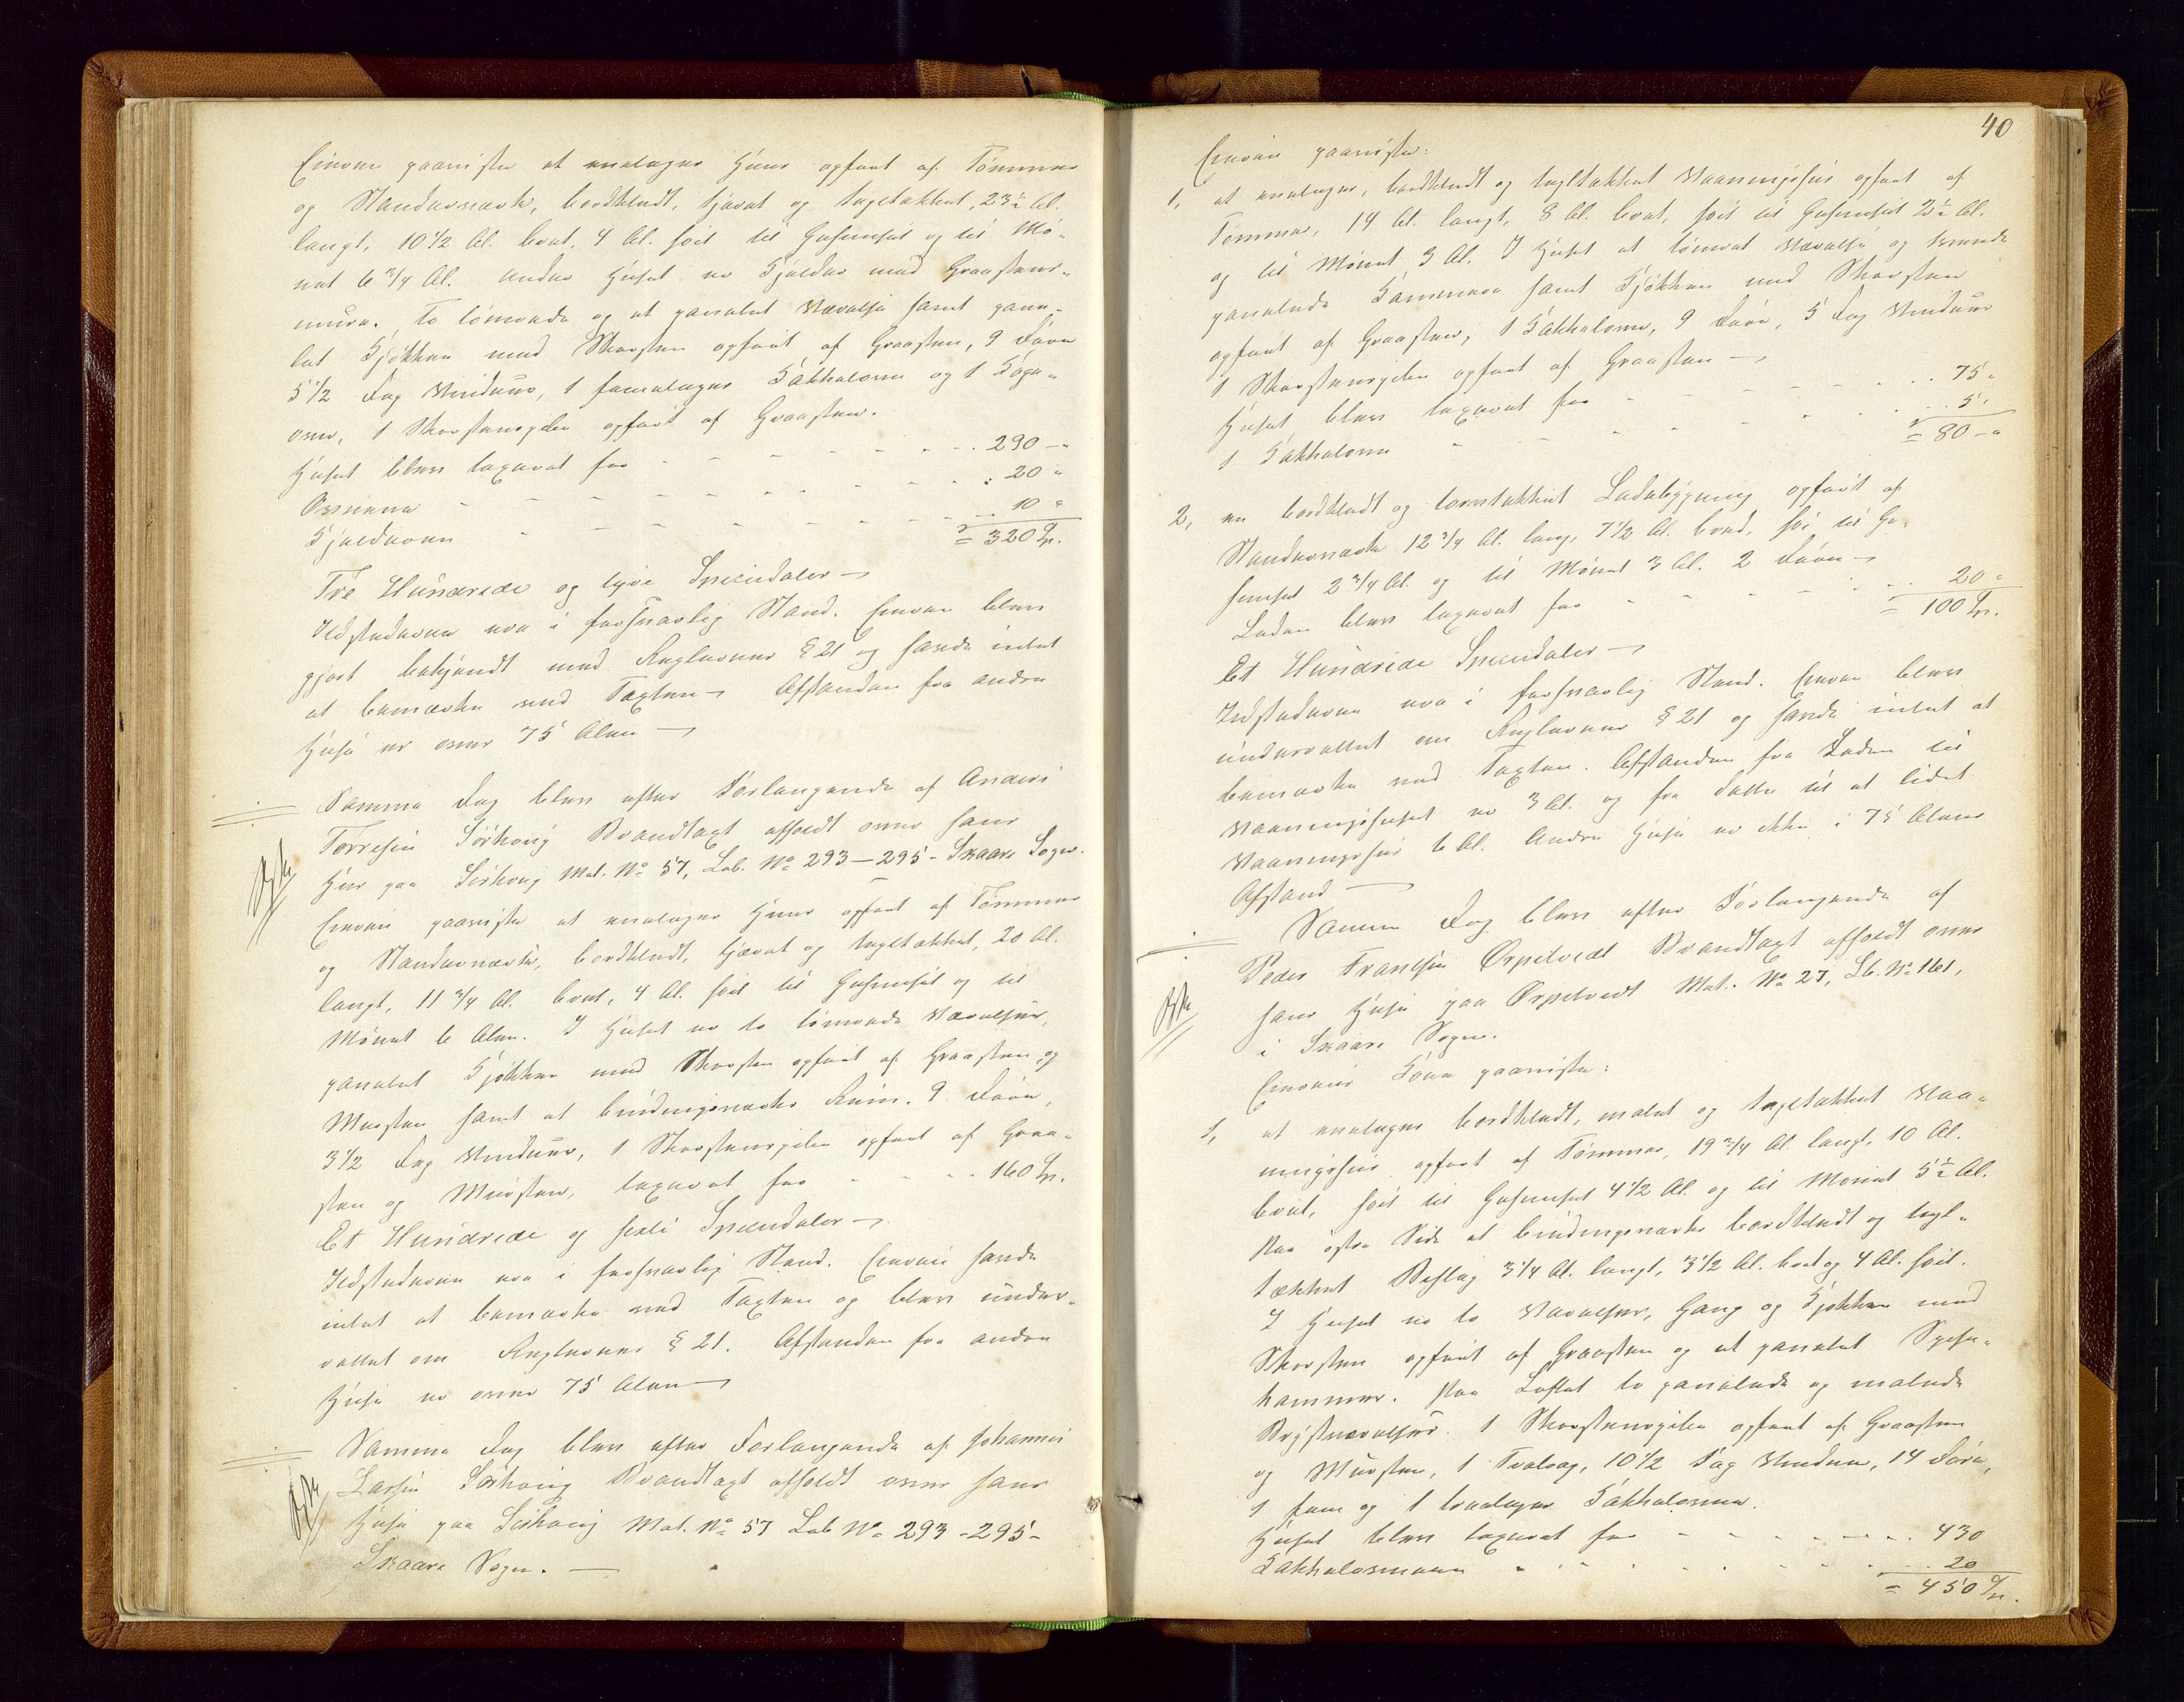 Eieren paaviste et enetages Huus opført af Tømmer
og Stenderverk, bordklædt, tjæret og tagltækket, 23½ Al.
langt, 10 1/2 Al. bredt, 4 Al. høit til Gesimset og til Mø-
net 6 3/4 Al. under Huset er Kjelder med Graasteens-
mure. To tømrede og et panelet Værelse samt pane-
let Kjøkken med Skorsten opført af Graasten, 9 Døre
5 1/2 Fag Vinduer, 1 femetages Kakkelovn og 1 Koge-
ovn, 1 Skorstenspibe opført af Graasten.
Huset blev taxeret for - - - 290 - "
Ovnene - - - 20 "
Kjelderen - - - 10 "
= 320 Sp.
Tre Hundrede og tyve Speciedaler -
Ildstederne var i forsvarlig Stand. Eieren blev
gjort bekjendt med Reglernes § 21 og havde intet
at bemærke ved Taxten - Afstanden fra andre
Huse er over 75 Alen -
Samme Dag blev efter Forlangende af Anders
Torresen Sørhoug Brandtaxt afholdt over hans
Hus paa Sørhoug Mat. No 57, Lab. No 293 - 295 - Skaare Sogn.
Eieren paaviste et enetages Huus opført af Tømmer
og Stenderverk, bordklædt, tjæret og tagltækket, 20 Al.
langt, 11 3/4 Al. bredt, 4 Al. høit til Gesimset og til
Mønet 6 Alen. I Huset er to tømrede Værelser,
panelet Kjøkken med Skorsten opført af Graasten og
Mursten samt et bindingsverks Rum. 9 Døre,
3 1/2 Fag Vinduer, 1 Skorstenspibe opført af Graa-
sten og Mursten, taxeret for - - - 160 Sp.
Et Hundrede og sexti Speciedaler -
Ildstederne var i forsvarlig Stand. Eieren havde
intet at bemærke ved Taxten og blev under-
rettet om Reglernes § 21. Afstanden fra andre
Huse er over 75 Alen -
Samme Dag blev efter Forlangende af Johannes
Larsen Sørhoug Brandtaxt afholdt over hans
Huse paa Sørhoug Mat. No 57 Lab No 293 - 295 -
Skaare Sogn. -
40
Eieren paaviste:
1, et enetages, bordklædt og tagltækket Vaaningshus opført af
Tømmer, 14 Al. langt, 8 Al. bredt, høit til Gesimset 2½ Al.
og til Mønet 3 Al. I Huset et tømret Værelse og tvende
panelede Kammere samt Kjøkken med Skorsten
opført af Graasten, 1 Kakkelovn, 9 Døre, 5 Fag Vinduer
1 Skorstenspibe opført af Graasten -
Huset blev taxeret for - - - 75 "
1 Kakkelovn - - - 5 "
= 80 - "
2, en bordklædt og tagltækket Ladebygning opført af
Stenderverk 12 3/4 Al. lang, 7 1/2 Al. bred, høi til Ge-
simset 2 3/4 Al. og til Mønet 3 Al. 2 Døre -
Laden blev taxeret for - - - 20 "
= 100 Sp.
Et Hundrede Speciedaler -
Ildstederne var i forsvarlig Stand. Eieren blev
underrettet om Reglernes § 21 og havde intet at
bemærke ved Taxten. Afstanden fra Laden til
Vaaningshuset er 3 Al. og fra dette til et lidet
Vaaningshus 6 Al. Andre Huse er ikke i 75 Alens
Afstand -
Samme Dag blev efter Forlangende af
Peder Frantsen Ørpetvedt Brandtaxt afholdt over
hans Huse paa Ørpetvedt Mat. No 27, Lb. No 161,
i Skaare Sogn.
Eierens Kone paaviste:
1, et enetages bordklædt, malet og tagltækket Vaa-
ningshus opført af Tømmer, 19 3/4 Al. langt, 10 Al.
bredt, høit til Gesimset 4 1/2 Al. og til Mønet 5½ Al.
Paa østre Side et bindingsverks bordklædt og tagl-
tækket Bislag 3 1/4 Al. langt, 3 1/2 Al. bredt og 4 Al. høit.
I Huset er to Værelser, Gang og Kjøkken med
Skorsten opført af Graasten og et panelet Spise-
kammer. Paa Loftet to panelede og malede
Brystværelser. 1 Skorstenspibe opført af Graasten
og Mursten, 1 10 1/2 Fag Vinduer, 14 Døre,
1 fem og 1 treetages Kakkelovne.
Huset blev taxeret for - - - 430
Kakkelovnene - - - 20
= 450 Sp.